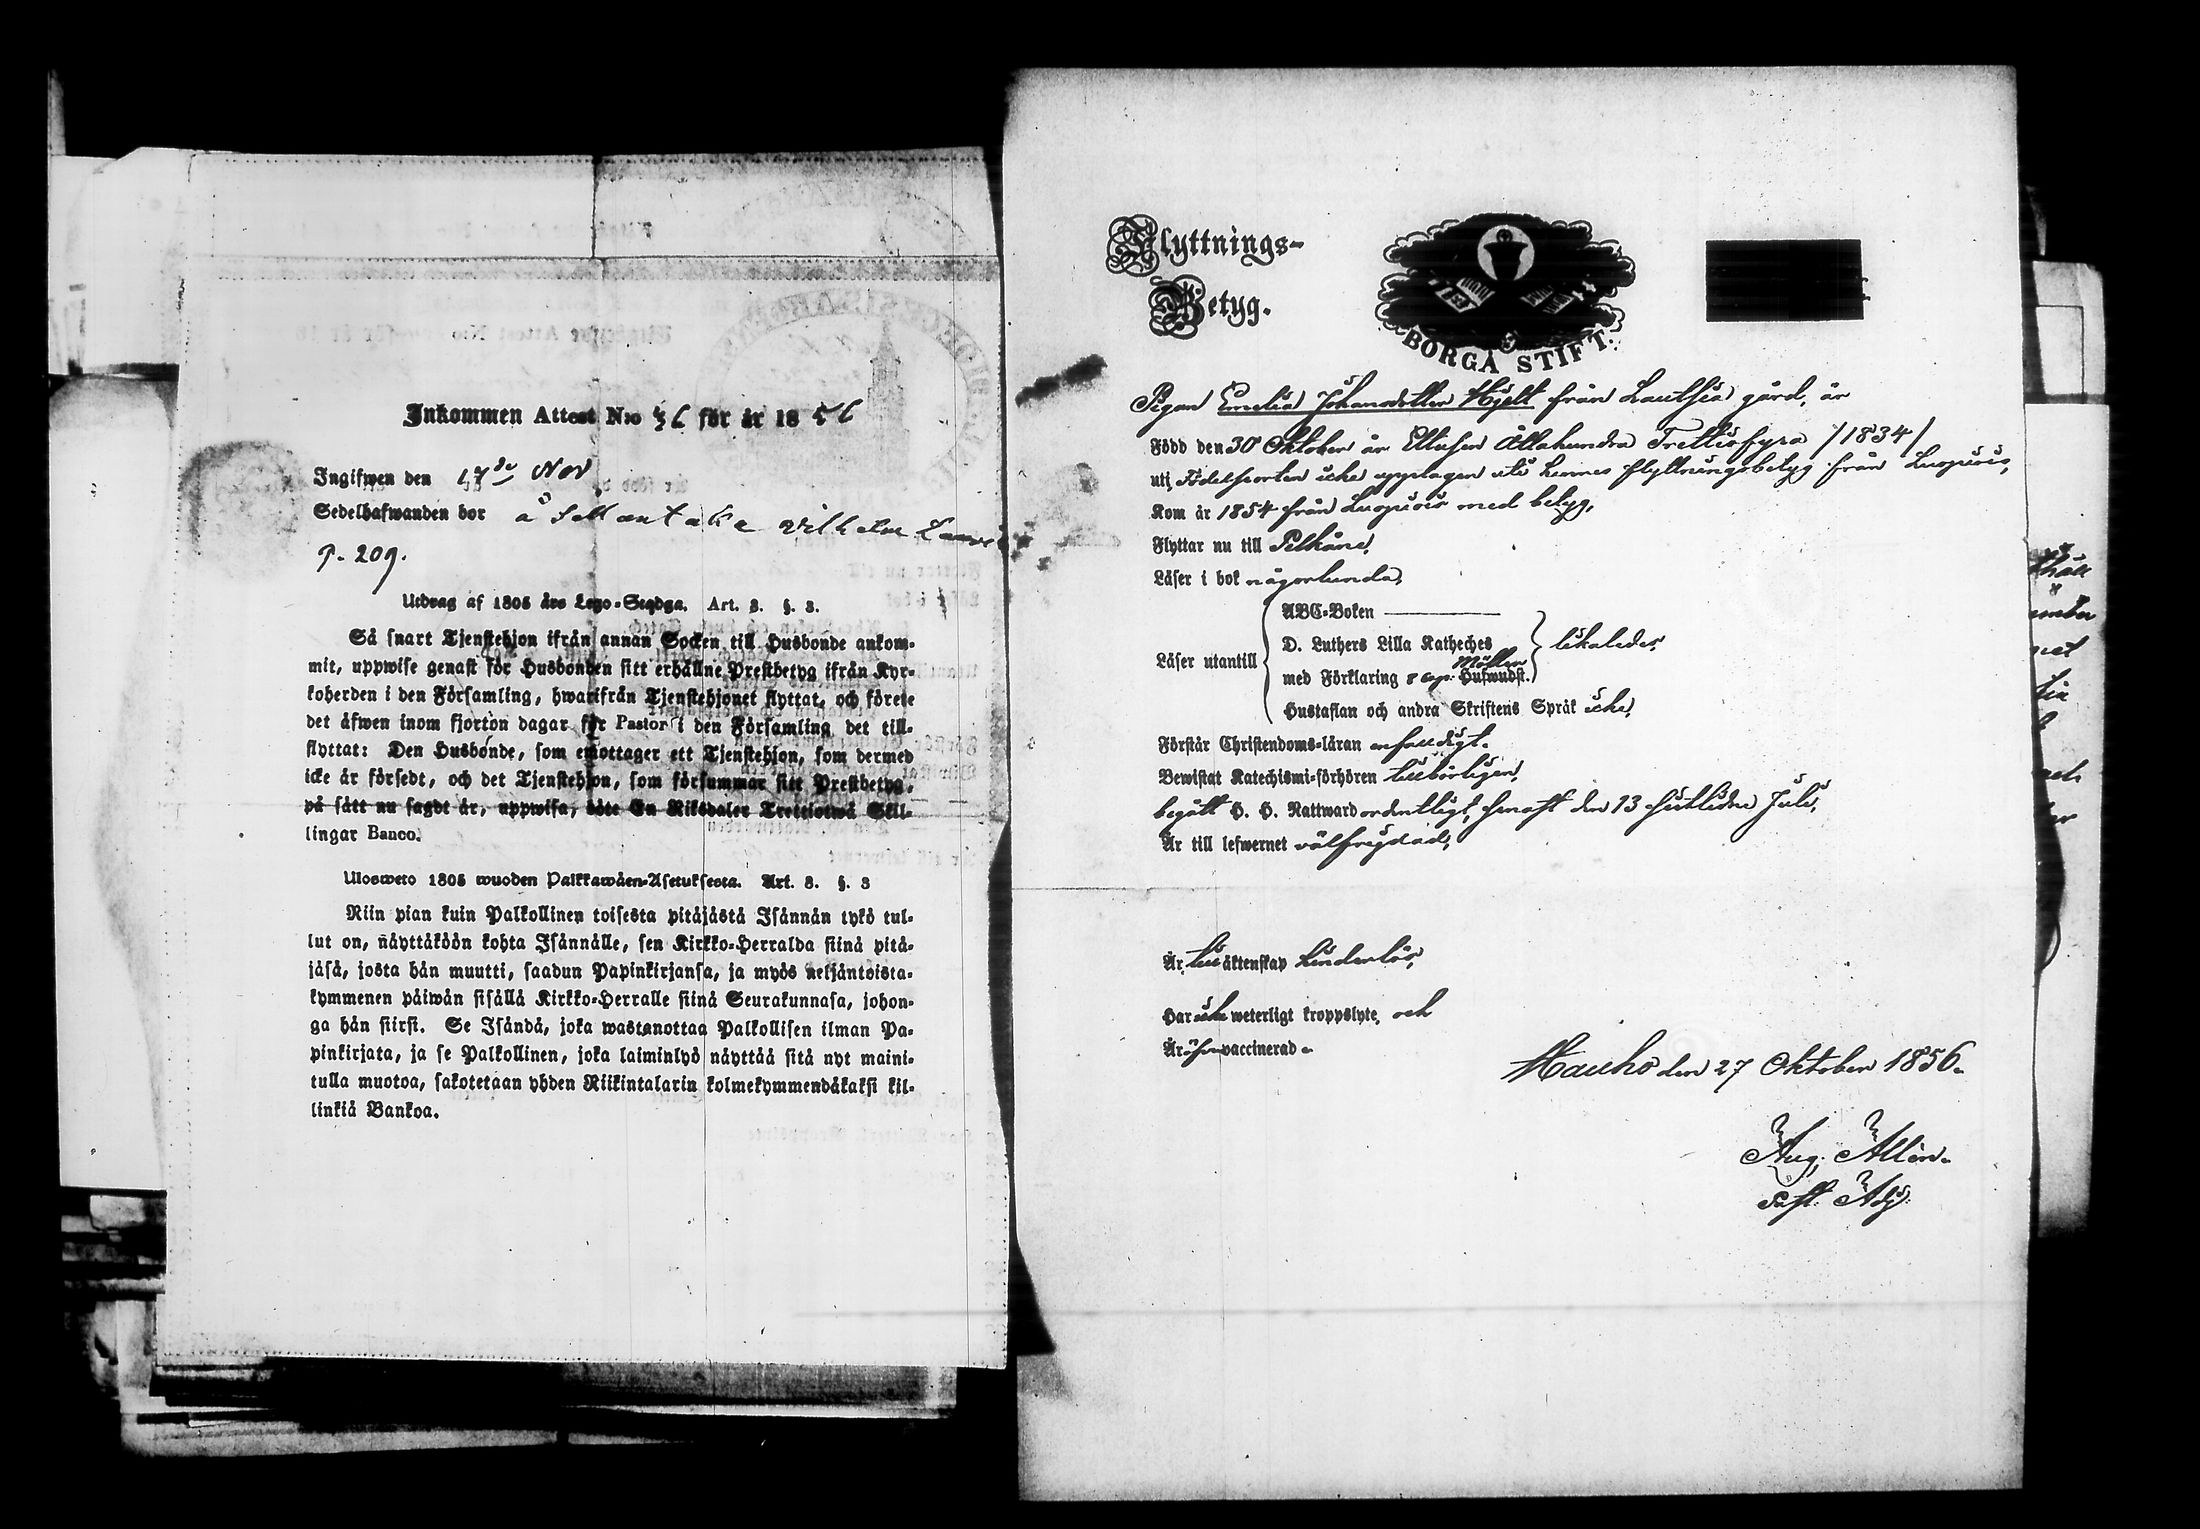 Inkommen Attest N:o 36 för år 1856
Ingifwen den 17de Nov
Sedelhafwanden bor å Vilhelm
p. 209.
Utdrag af 1805 års Lego-Stadga. Art. 3. §. 3.
Så snart Tjenstehjon ifrån annan Socken till Husbonde ankom-
mit, uppwise genast för Husbonden sitt erhållne Prestbetyg ifrån Kyr-
koherden i den Församling, hwarifrån Tjenstehjonet flyttat, och förete
det äfwen inom fjorton dagar för Pastor i den Församling det till-
flyttat: Den Husbonde, som emottager ett Tjenstehjon, som dermed
icke är försedt, och det Tjenstehjon, som försummar sitt Prestbetyg,
på sätt nu sagdt är, uppwisa, böte En Riksdaler Trettiotwå Skil-
lingar Banco.
Ulosweto 1805 wuoden Palkkawäen-Asetuksesta. Art. 3. §. 3
Niin pian kuin Palkollinen toisesta pitäjästä Isännän tykö tul-
lut on, näyttäköön kohta Isännälle, sen Kirkko-Herralda siinä pitä-
jäsä, josta hän muutti, saadun Papinkirjansa, ja myös neljäntoista-
kymmenen päiwän sisällä Kirkko-Herralle siinä Seurakunnasa, johon-
ga hän siirsi. Se Isändä, joka wastanottaa Palkollisen ilman Pa-
pinkirjata, ja se Palkollinen, joka laiminlyö näyttää sitä nyt maini-
tulla muotoa, sakotetaan yhden Riikintalarin kolmekymmendäkaksi kil-
linkiä Bankoa.
Flyttnings-
Betyg.
BORGÅ STIFT.
Pigan Emelia Johansdotter Hjelt från Lautsia gård, är
Född den 30 Oktober år Ettusen Åttahundra Trettiofyra /1834/
uti, Födelseorten icke upptagen uti hennes flyttningsbetyg från Luopiois,
Kom år 1854 från Luopiois med betyg,
Flyttar nu till Pelkäne,
Läser i bok någorlunda,
ABC-Boken
D. Luthers Lilla Katheches
Läser utantill likaledes,
med Förklaring 8 cap. Hufwudst.
Hustaflan och andra Skriftens Språk icke,
Förstår Christendoms-läran enfaldigt.
Bewistat Katechismi-förhören tillbörligen,
begått H. H. Nattward ordentligt, senast den 13 sistlidne Juli,
Är till lefwernet välfrejdad,
Är till äktenskap hinderlös,
Har icke weterligt kroppslyte, och
Är vaccinerad.
Hauho den 27 Oktober 1856.
Aug. Allén.
Past. Adj.